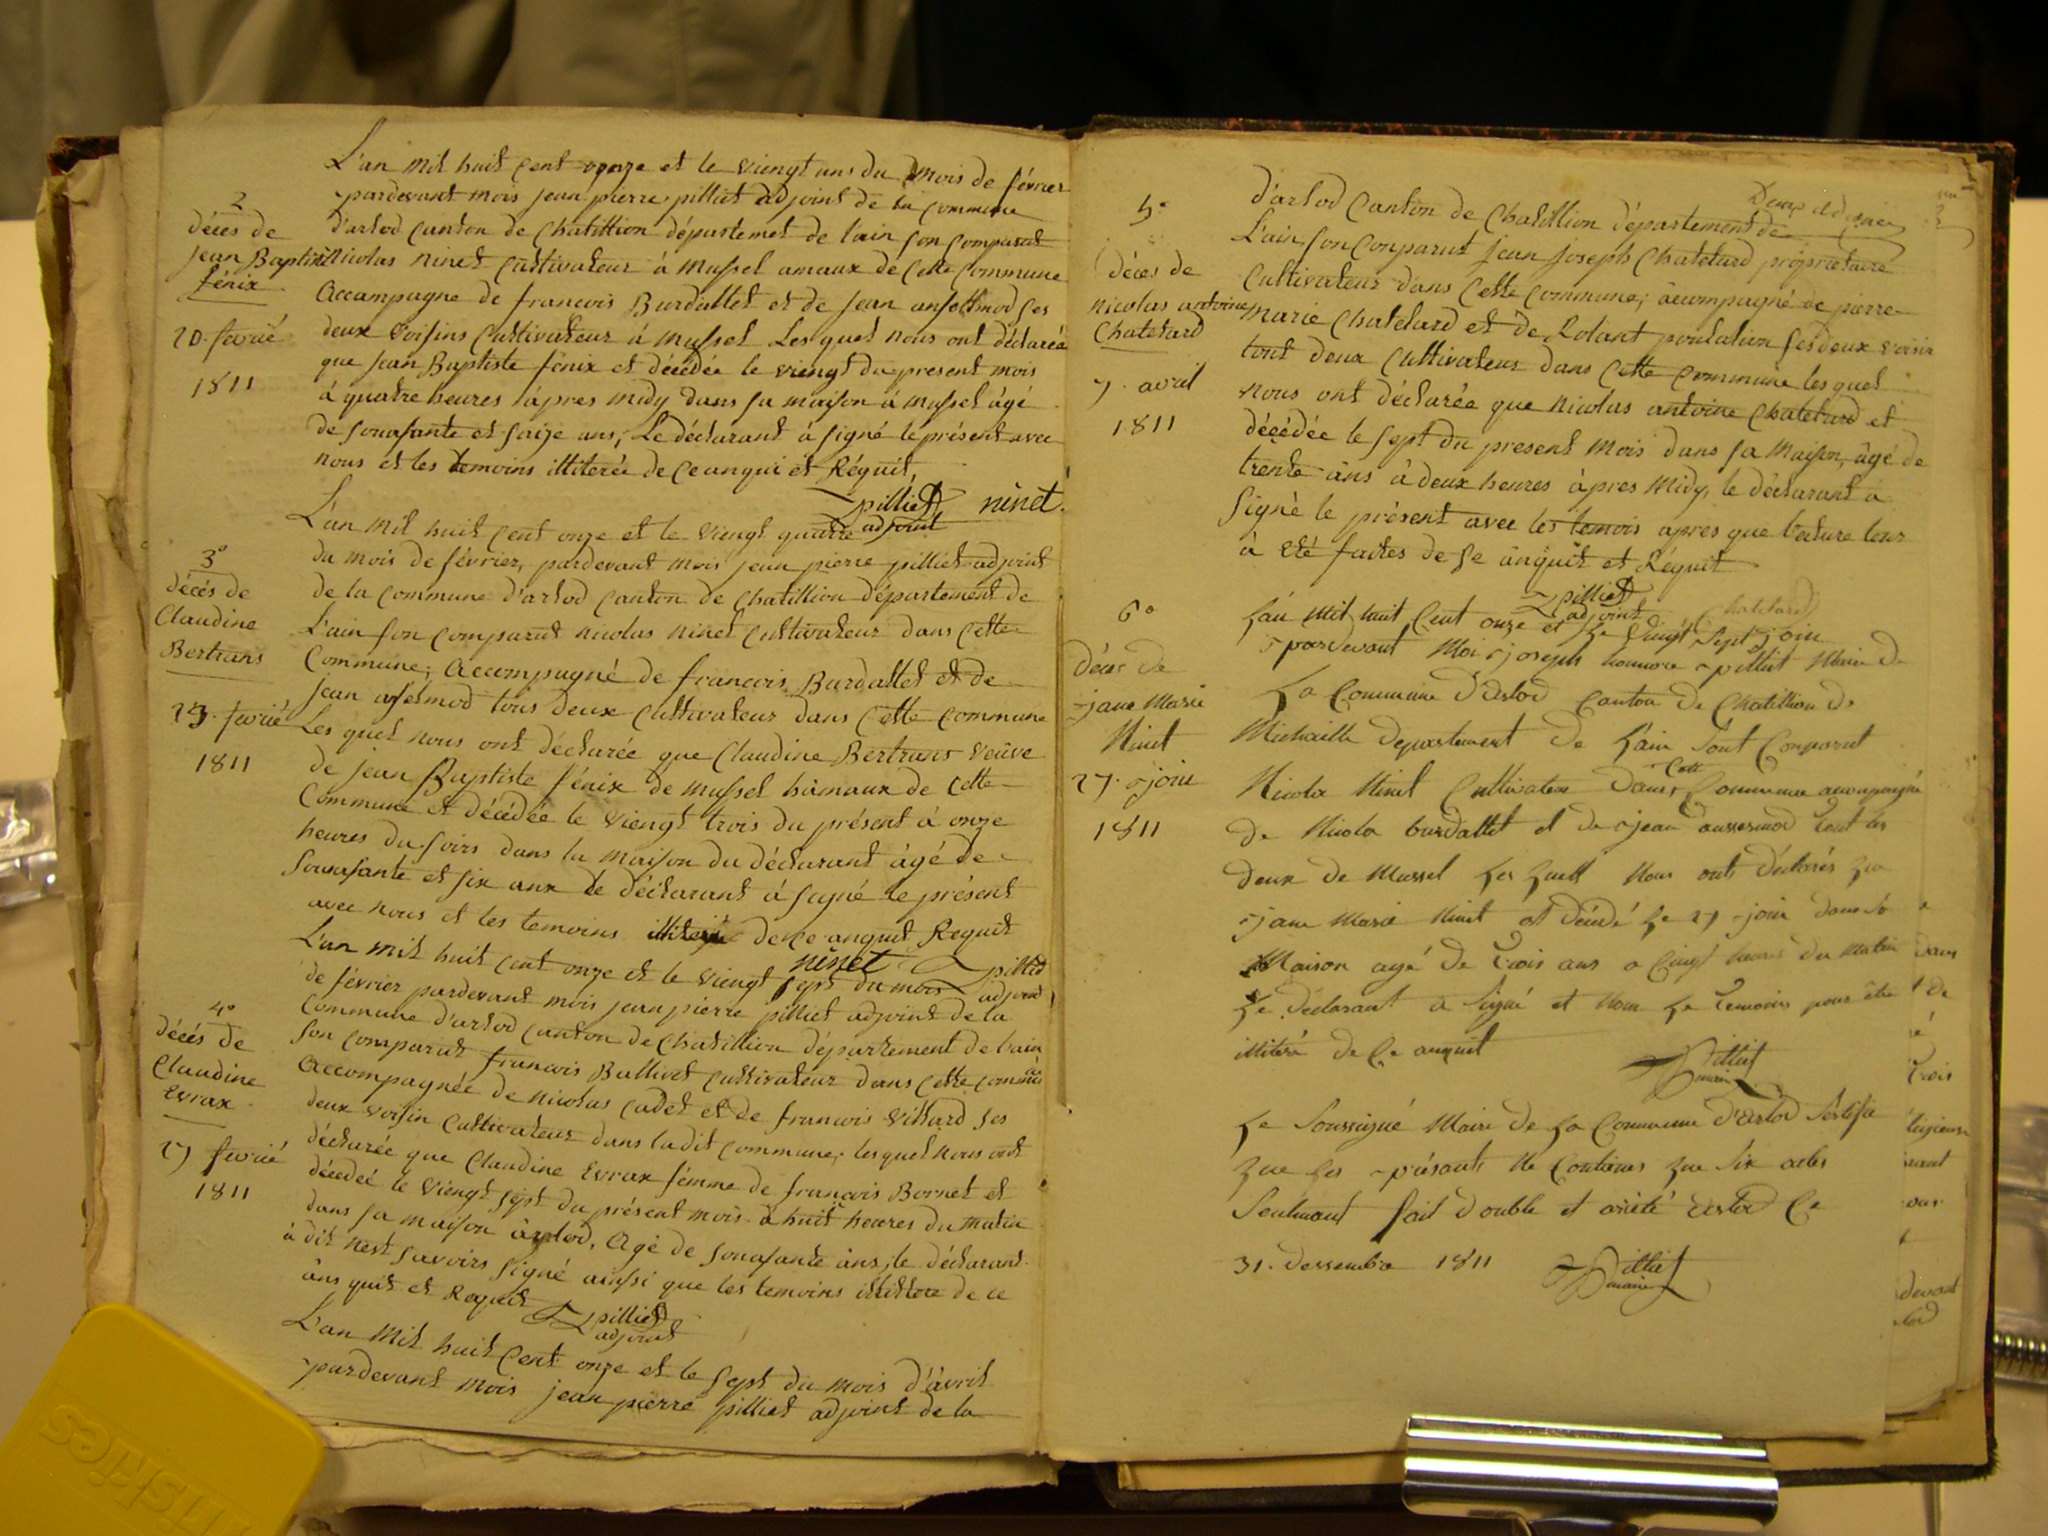 L'an mil huit cent onze et le viengt uns du mois de février
pardevant mois jean pierre pilliet adjoint de la commune
2
décés de
jean Baptiste
fénix
20. fevrié
1811
d'arlod canton de Chatillion départemet de l'ain son comparut
Nicolas ninet cultivateur à Mussel amaux de cette commune
accampagne de francois Burdallet et de jean ansellmod ses
deux voisins cultivateur à mussel Les quel nous ont déclarée
que jean Baptiste fénix et décédée le viengt du present mois
à quatre heures âpres midy dans sa maison à mussel âgé
de souasante et saize ans, Le déclarant à signé le présent avec
nous et les temoins illiterée de ce anqui et Réquit
pilliet ninet
adjoint
L'an mil huit cent onze et le viengt quatre
3°
décés de
Claudine
Bertrans
23. fevrié
1811
du mois de février, pardevant mois jean pierre pilliet adjoint
de la commune d'arlod canton de Chatillion département de
L'ain son comparut nicolas ninet cultivateur dans cette
Commune; accompagné de francois Burdallet et de
jean anselmod tous deux cultivateur dans cette commune
Les quel nous ont déclarée que Claudine Bertrans veuve
de jean Baptiste fénix de mussel hamaux de cette
Commune et décédée le viengt trois du présent à onze
heures du soirs dans la maison du déclarant âgé de
souasante et six anx le déclarant à signé le présent
avec nous et les temoins de ce anquit Requit
ninet pilliet
adjoint
L'an mil huit cent onze et le viengt sept du mois
4°
décés de
Claudine
Evrax
27 fevrié
1811
de février pardevant mois jean pierre pilliet adjoint de la
Commune d'arlod canton de Chatillion département de l'ain
son comparut francois Bullivet cultivateur dans cette commune
accompagnée de nicolas cadet et de francois Villard ses
deux voisin cultivateur dans ladit commune, lesquel nous ont
déclarée que Claudine Evrax fémme de françois Bornet et
décedeé le viengt sept du présent mois à huit heures du matin
dans sa maison àrlod, agé de souasante âns, le déclarant
à dit nest savoirs signé ainssi que les temoins de ce
âns quit et Requit
pilliet
adjoint
L'an mil huit cent onze et le sept du mois d'âvril
pardevant mois jean pierre pilliet adjoint de la
5°
décés de
nicolas antoine
Chatelard
7. avril
1811
d'arlod canton de Chatillion département de
L'ain son conparut jean joseph Chatelard propriétaire
Cultivateur dans cette commune; acompagné de pierre
marie Chatelard et de Rolant ses deux voisin
tout deux cultivateur dans cette commune les quel
nous ont déclarée que nicolas antoine Chatelard et
décédée le sept du present mois dans sa maison, âgé de
trente âns à deux heures âpres midy, le déclarant a
signé le présent avec les temois apres que lecture leur
à eté faites de se anquit et Réquit
pilliet
adjoint
Chatelard
6°
Déces de
jane Marie
Ninet
27. join
1811
L'an mil huit cent onze et le vingt sept join
pardevant Moi joseph pilliet Maire de
La Commune d'Arlod Canton de Chatillion de
Michaille departement de L'ain Sont Conparut
cette
Nicola Ninet Cultivateur Dans Commune acompaigné
de Nicola burdallet et de jean tout les
deux de Mussel Les quell Nous onts déclarés que
jane Marie Ninet est décédé Le 27 join dans sa
Maison agé de trois ans a Cinqt heures du Matin
Le Déclarant a Signé et Nom Le temoins pour être
illiteré de Ce anquit
Pilliet
maire
Le Soussigné Maire de La Commune d'Arlod Sertifie
que Les présants Ne Contienes que Six actes
Seulmant fait double et arété Arlod Ce
31. dessembre 1811
Pilliet
maire